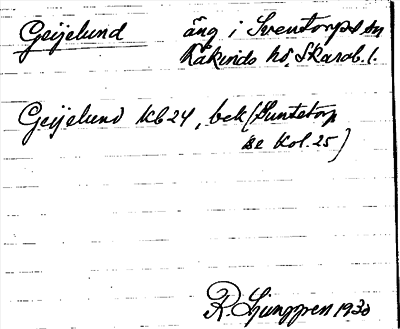 Geijelund äng i Sventorps sn
Kåkinds hd, Skarab. l.
Geijelund Kb 24, bek (Suntetorp
se Kol. 25)
R. Ljunggren 1930